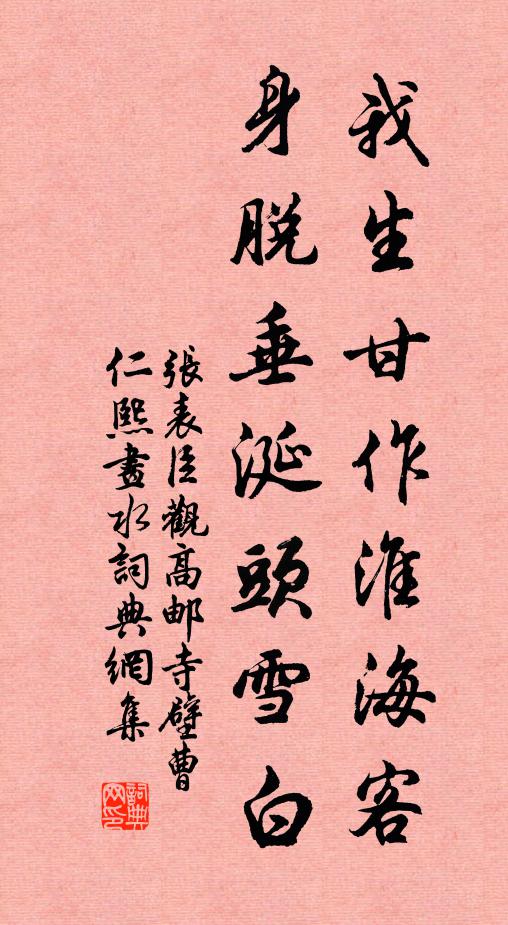 我生甘作淮海客
身脱垂涎頭雪白
張表臣觀高邮寺壁曹
仁熙畫水詞典網集
詞典网印